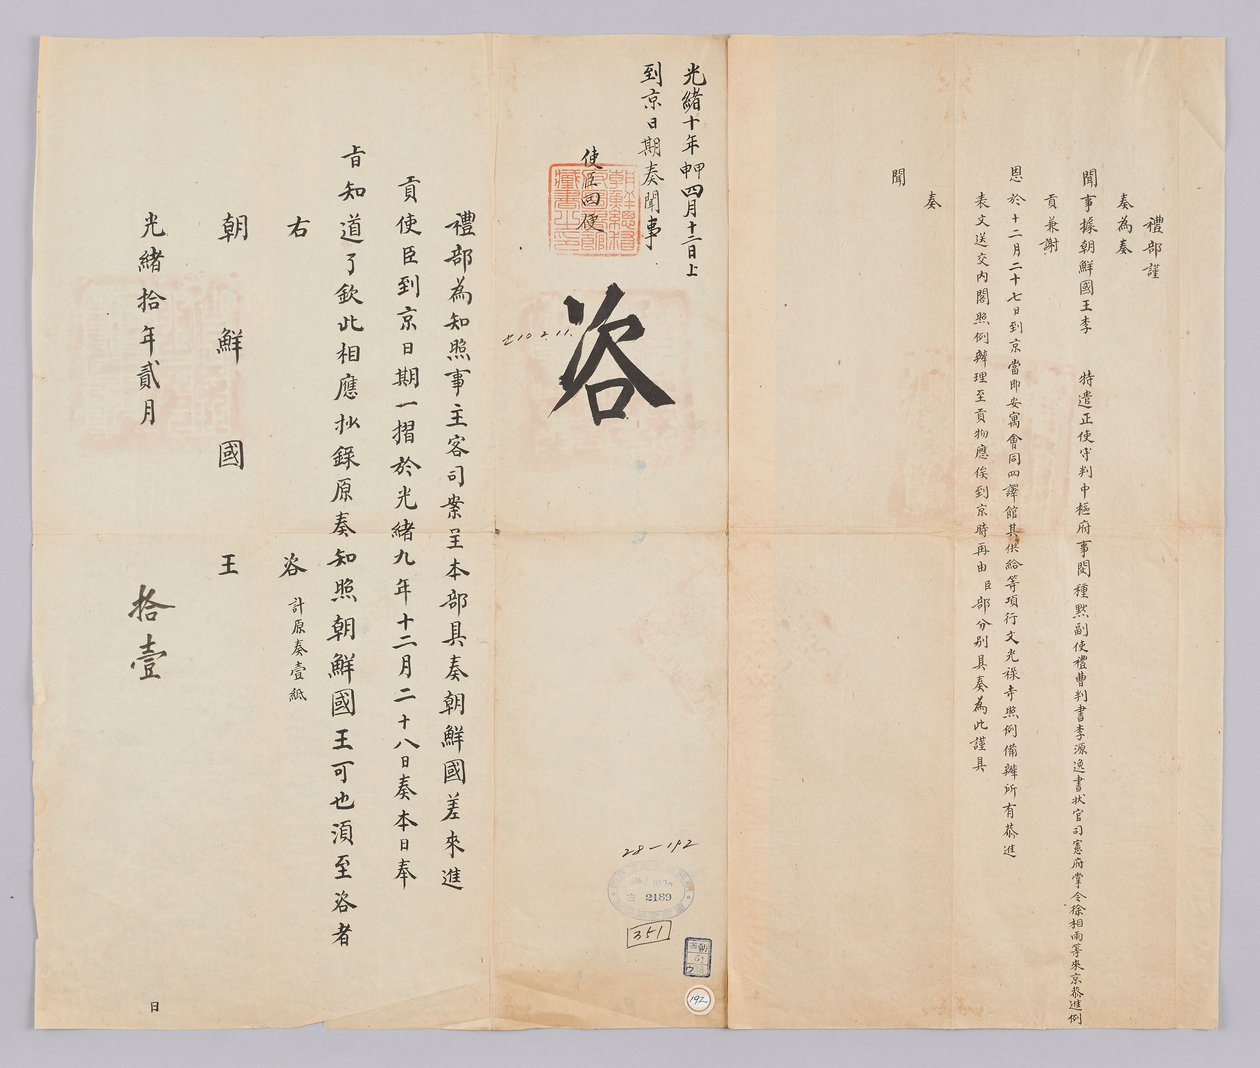 禮部謹
奏為奏
聞事據朝鮮國王李 特遣正使守判中樞府事閔種默副使禮曹判書李源逸書狀官司憲府掌令徐相雨等來京恭進例
貢兼謝
恩於十二月二十七日到京當即安寓會同四譯館其供給等項行文光祿寺照例備辦所有恭進
表文送交內閣照例辦理至貢物應俟到京時再由臣部分別具奏為此謹具
奏
聞
光緒十年甲申四月十二日上
到京日期奏聞事
使臣回便
朝鮮總督
藏書之印
咨
七10.2.11.
28-192
2189
351
192
禮部為知照事主客司案呈本部具奏朝鮮國差來進
貢使臣到京日期一摺於光緒九年十二月二十八日奏本日奉
旨知道了欽此相應抄錄原奏知照朝鮮國王可也須至咨者
右 咨 計原奏壹紙
朝鮮國王
光緒拾年貳月 拾壹 日